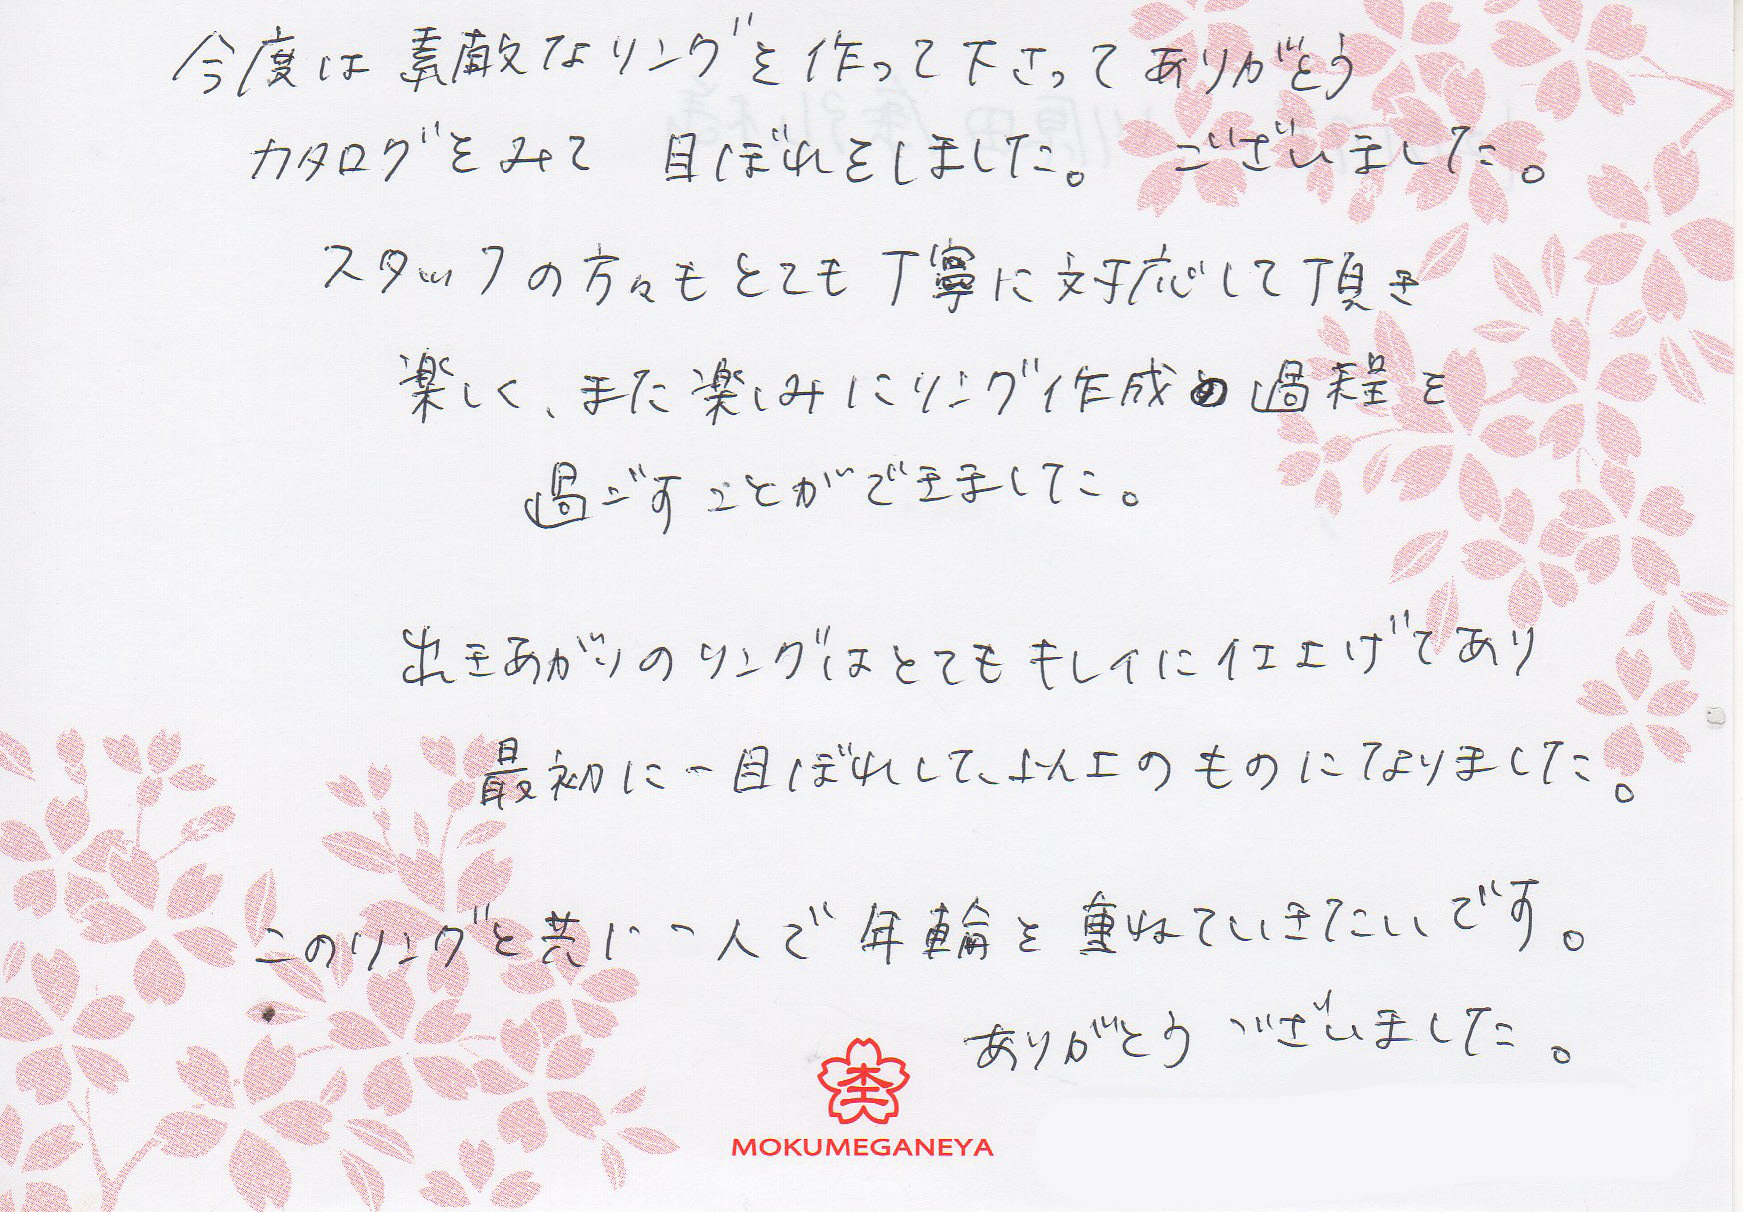 今度は素敵なリングを作って下さってありがとう
カタログをみて 目ぼれをしました。 ございました。
スタッフの方々もとても丁寧に対応して頂き
楽しく、また楽しみにリング作成の過程を
過ごすことができました。
出きあがりのリングはとてもキレイに仕上げてあり
最初に一目ぼれして、以上のものになりました。
このリングと共に二人で年輪を重ねていきたいです。
ありがとうございました。
杢
MOKUMEGANEYA